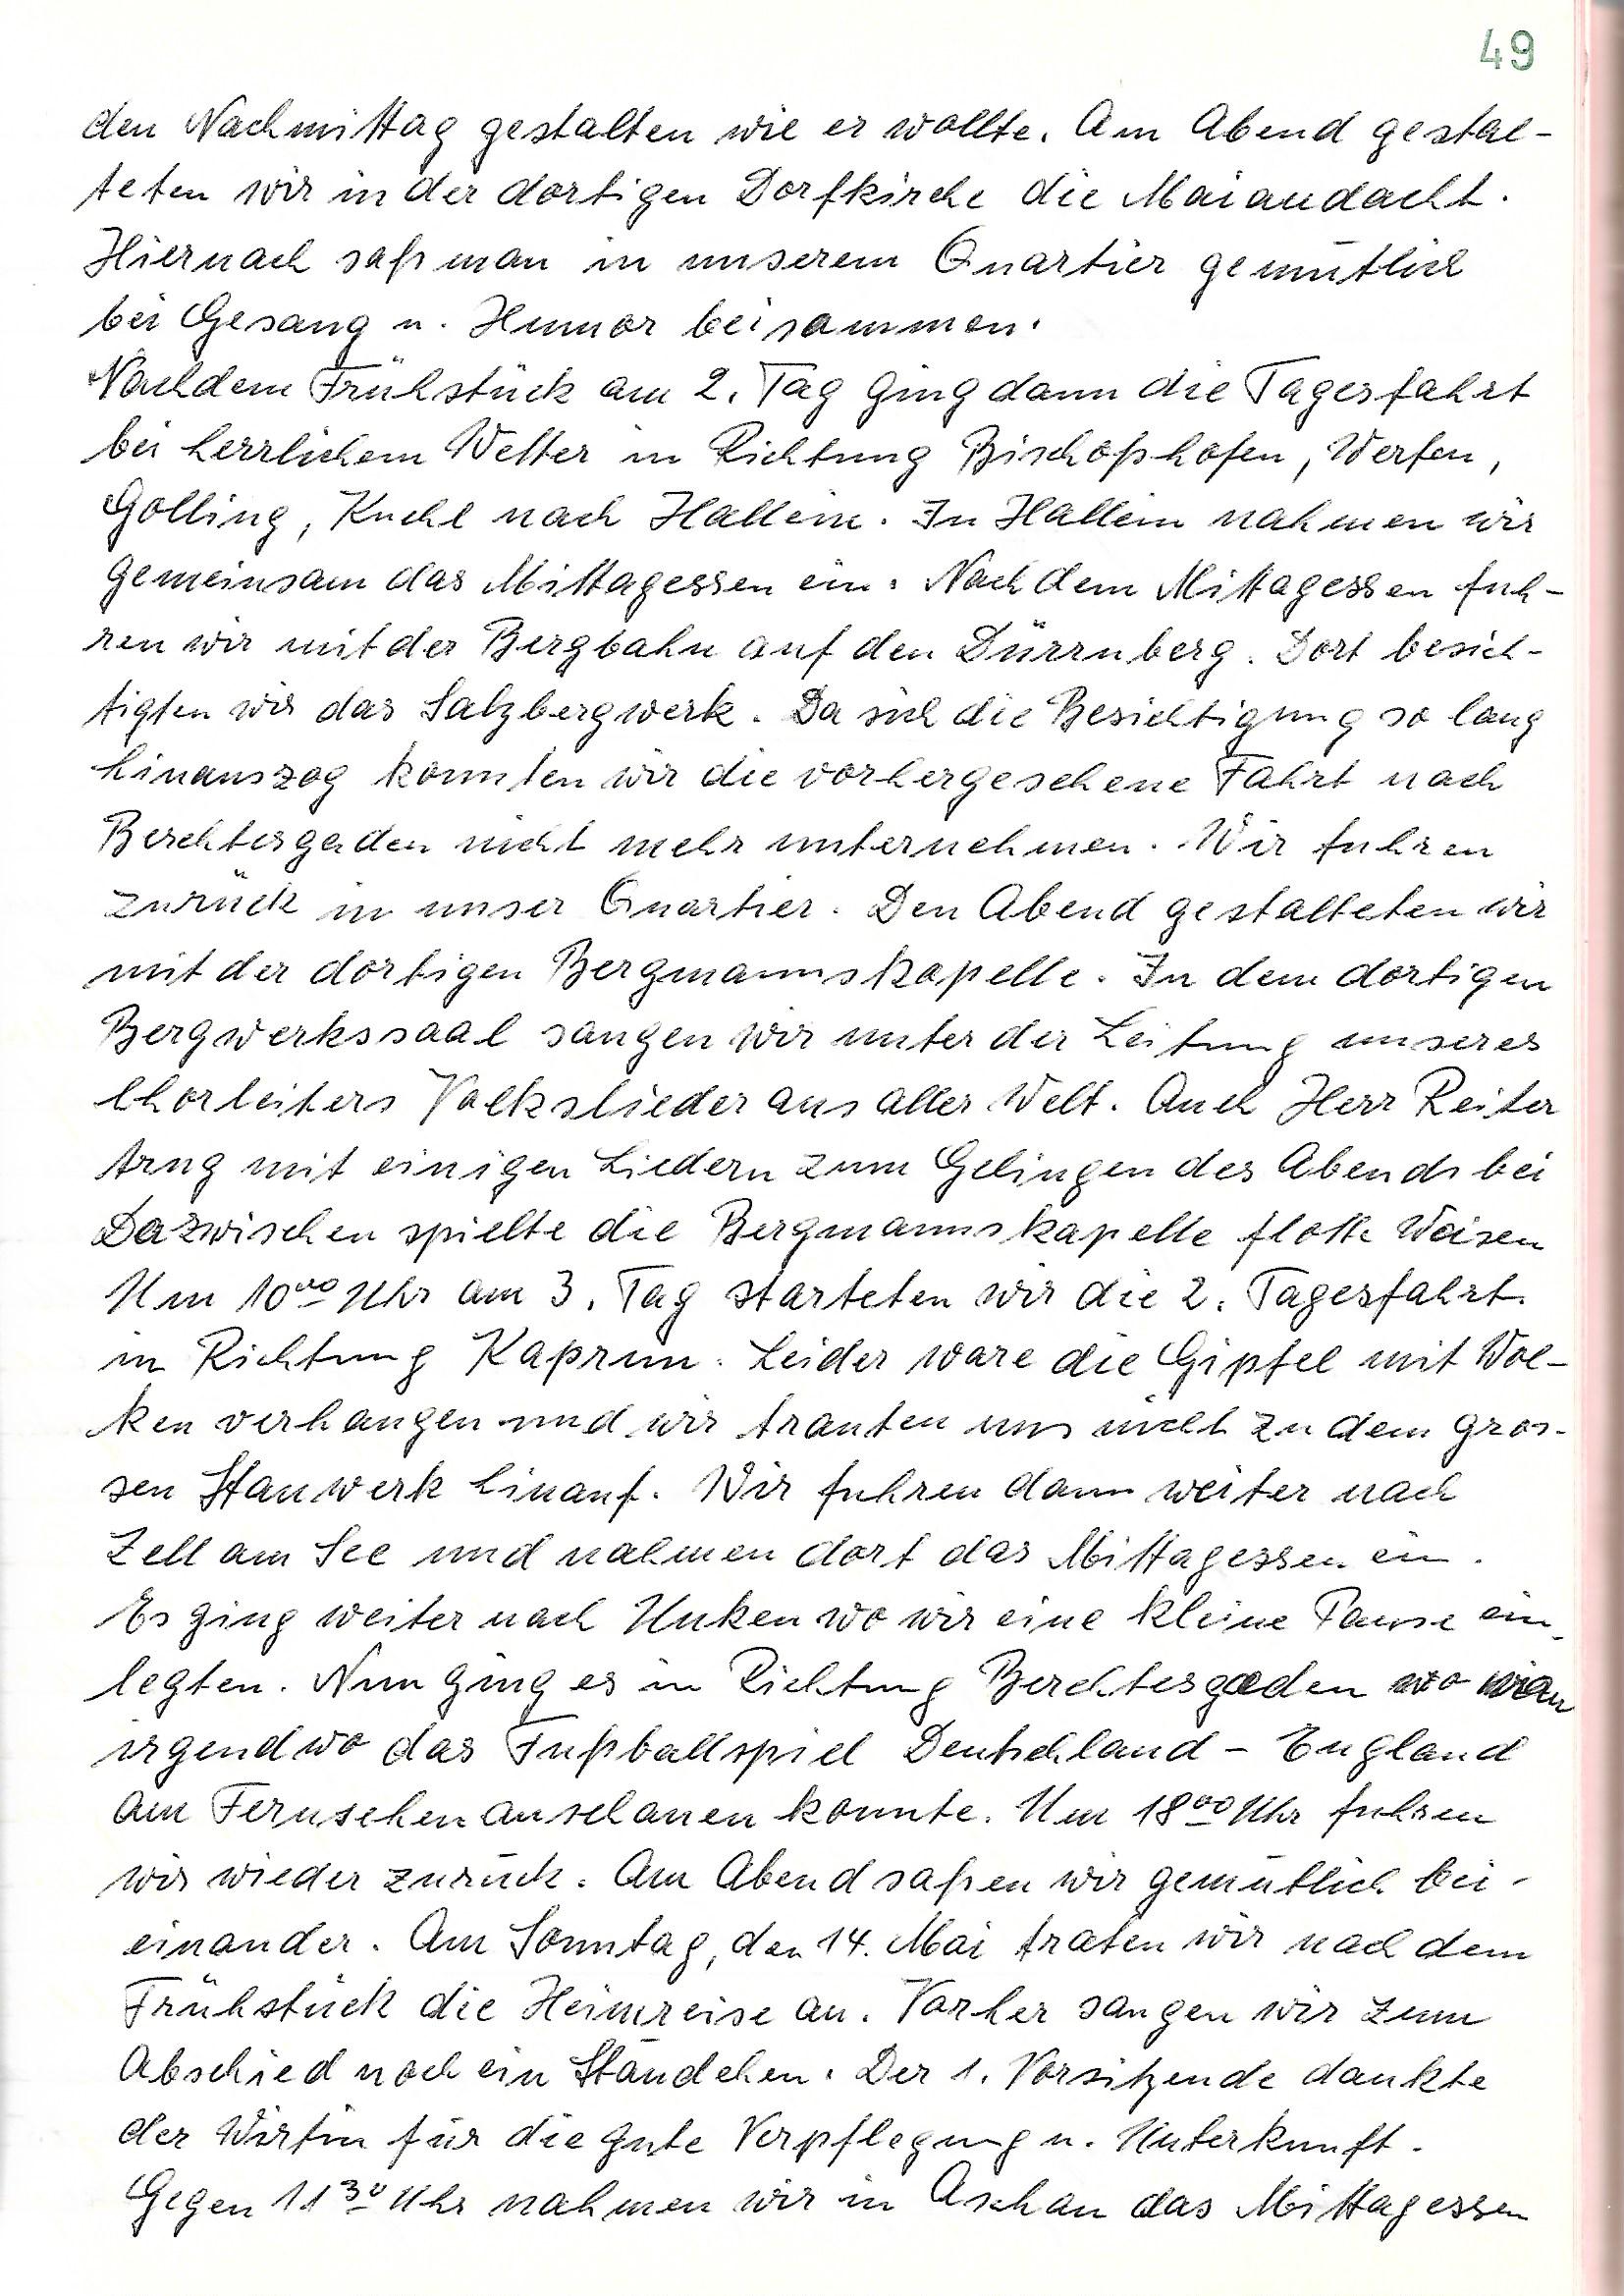 49
den Nachmittag gestalten wie er wollte. Am Abend gestal-
teten wir in der dortigen Dorfkirche die Maiandacht.
Hiernach saß man in unserem Quartier gemütlich
bei Gesang u. Humor beisammen.
Nachdem Frühstück am 2. Tag ging dann die Tagesfahrt
bei herrlichem Wetter in Richtung Bischofshofen, Werfen,
Golling, Kuchl nach Hallein. In Hallein nahmen wir
gemeinsam das Mittagessen ein. Nach dem Mittagessen fuh-
ren wir mit der Bergbahn auf den Dürrnberg. Dort besich-
tigten wir das Salzbergwerk. Da sich die Besichtigung so lang
hinauszog konnten wir die vorhergesehene Fahrt nach
Berchtesgaden nicht mehr unternehmen. Wir fuhren
zurück in unser Quartier. Den Abend gestalteten wir
mit der dortigen Bergmannskapelle. In dem dortigen
Bergwerkssaal sangen wir unter der Leitung unseres
Chorleiters Volkslieder aus aller Welt. Auch Herr Reiter
trug mit einigen Liedern zum Gelingen des Abends bei
Dazwischen spielte die Bergmannskapelle flotte Weisen
Um 10⁰⁰ Uhr am 3. Tag starteten wir die 2. Tagesfahrt.
in Richtung Kaprun. Leider ware die Gipfel mit Wol-
ken verhangen und wir trauten uns nicht zu dem gros-
sen Stauwerk hinauf. Wir fuhren dann weiter nach
Zell am See und nahmen dort das Mittagessen ein.
Es ging weiter nach Unken wo wir eine kleine Pause ein-
legten. Nun ging es in Richtung Berchtesgaden wo man
irgendwo das Fußballspiel Deutschland - England
am Fernsehen anschauen konnte. Um 18⁰⁰ Uhr fuhren
wir wieder zurück. Am Abend saßen wir gemütlich bei-
einander. Am Sonntag, den 14. Mai traten wir nach dem
Frühstück die Heimreise an. Vorher sangen wir zum
Abschied noch ein Ständchen. Der 1. Vorsitzende dankte
der Wirtin für die gute Verpflegung u. Unterkunft.
Gegen 11³⁰ Uhr nahmen wir in Aschau das Mittagessen